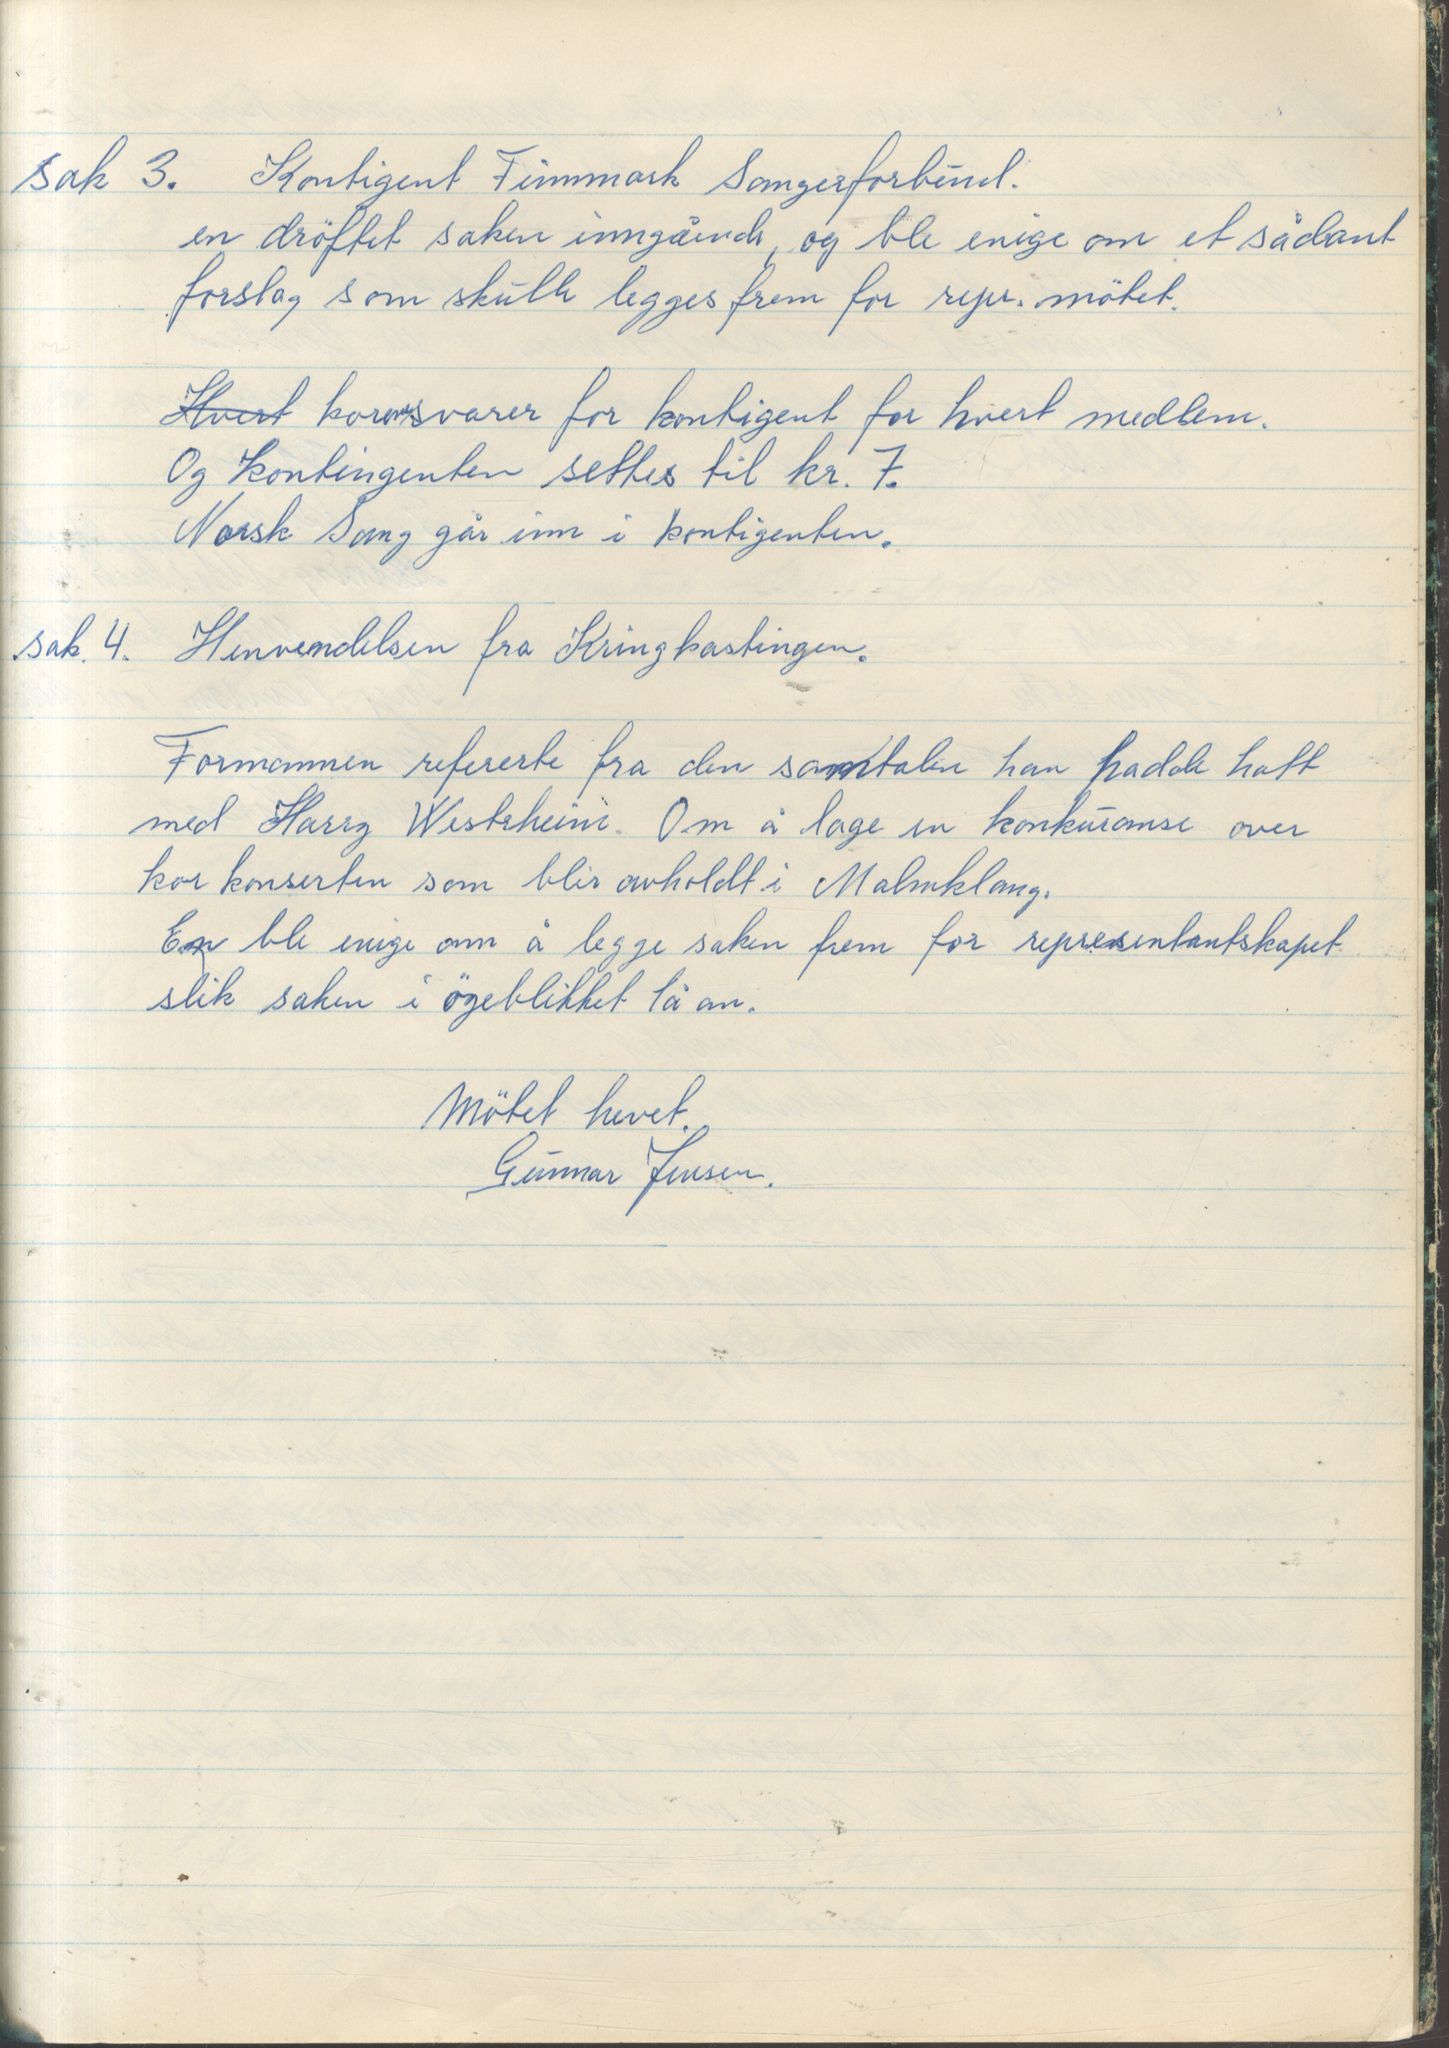 sak 3. Kontigent Finnmark Sangerforbund.
en dröftet saken inngående, og ble enige om et sådant
forslag som skulle legges frem for repr. mötet.
Hvert korene svarer for kontigent for hvert medlem.
Og kontingenten settes til kr. 7.
Norsk Sang går inn i kontigenten.
sak. 4. Henvendelsen fra Kringkastingen.
Formannen refererte fra den samtalen han hadde hatt
med Harry Westrheim. Om å lage en konkuranse over
kor konserten som blir avholdt i Malmklang.
En ble enige om å legge saken frem for representantskapet
slik saken i ögeblikket lå an.
Mötet hevet.
Gunnar Jensen.